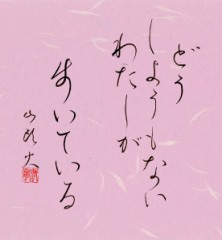 どう
しようもない
わたしが
歩いている
山頭火